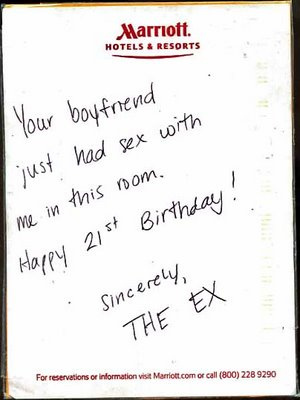 Marriott.
HOTELS & RESORTS
Your boyfriend
just had sex with
me in this room.
Happy 21st Birthday!
Sincerely,
THE EX
For reservations or information visit Marriott.com or call (800) 228 9290